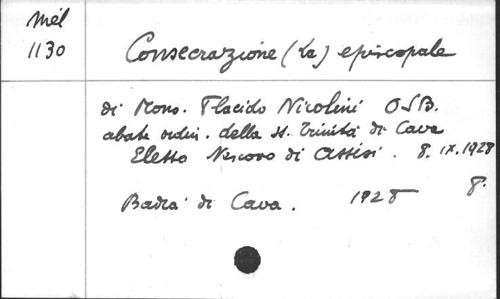 Mél
1130
Consecrazione (La) episcopale
di Mons. Placido Nicolini OSB.
abate ordin. della SS. Trinità di Cava
Eletto Vescovo di Assisi. 8.IX.1928
Badia di Cava. 1928 8.